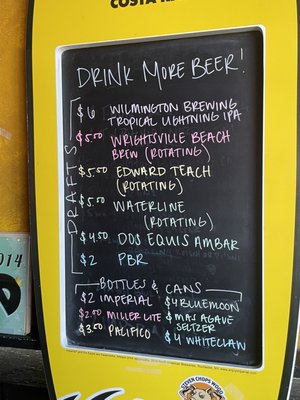 COSTA
DRINK MORE BEER!
DRAFTS
$6 WILMINGTON BREWING
TROPICAL LIGHTNING IPA
$5.00 WRIGHTSVILLE BEACH
BREW (ROTATING)
$5.50 EDWARD TEACH
(ROTATING)
$5.50 WATERLINE
(ROTATING)
$4.50 DOS EQUIS AMBAR
$2 PBR
BOTTLES & CANS
$2 IMPERIAL
$2.50 MILLER LITE
$3.50 PALIFICO
$4 BLUEMOON
$ MAS AGAVE
SELTZER
$4 WHITECLAW
014